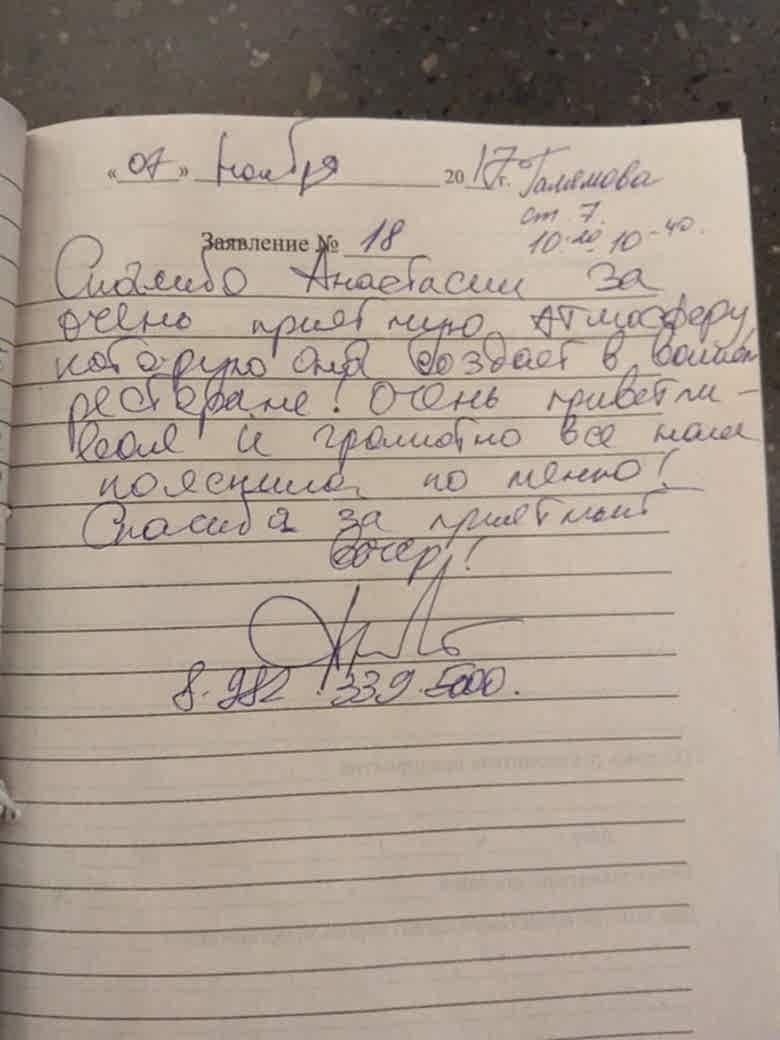 «07» Ноября 2017г. Галямова
ст 7.
Заявление № 18 10-20 10-40.
Спасибо Анастасии за
очень приятную атмосферу,
которую она создает в вашем
ресторане! Очень приветли-
вая и грамотно все нам
пояснила по меню!
Спасибо за приятный
вечер!
8.982 339.5000.